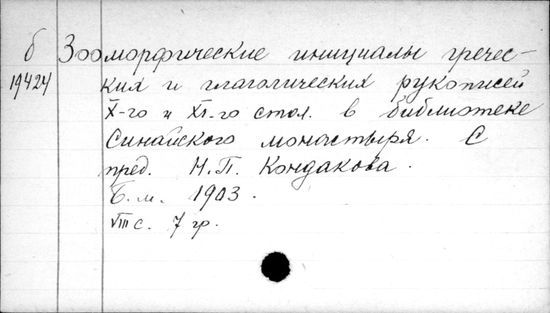 б Зооморфические инициалы гречес-
19424 ких и глаголических рукописей
X-го и XI-го стол. в библиотеке
Синайского монастыря. С
пред. Н.П. Кондакова.
Б.м. 1903.
VIII с. 7 гр.